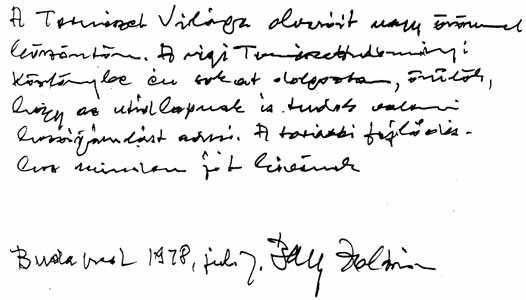 A Természet Világa olvasóit nagy örömmel
köszöntöm. A régi Természettudományi
Közlönybe én sokat dolgoztam, örülök,
hogy az utódlapnak is tudok valami
hozzájárulást adni. A további fejlődés-
hez minden jót kívánok
Budapest 1978, júl. 7. Bay Zoltán